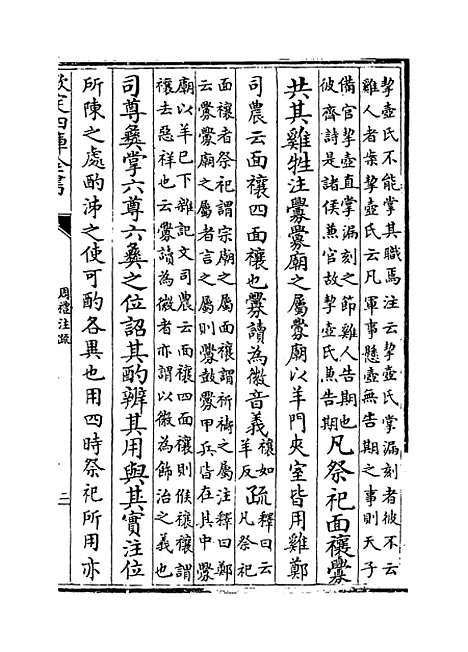 挈壺氏不能掌其職焉注云挈壺氏掌漏刻者彼不云
雞人者案挈壺氏云凡軍事懸壺無告期之事則天子
備官挈壺直掌漏刻之節雞人告期也
彼齊詩是諸侯兼官故挈壺氏兼告期
凡祭祀面禳釁
共其雞牲注釁釁廟之屬釁廟以羊門夾室皆用雞鄭
司農云面禳四面禳也釁讀為徽音義
禳如
羊反
疏
釋曰云
凡祭祀
面禳者祭祀謂宗廟之屬面禳謂祈禱之屬注釋曰鄭
云釁釁廟之屬者言之屬則釁鼓釁甲兵皆在其中釁
廟以羊已下雜記文司農云面禳四面禳則侯禳禳謂
禳去惡祥也云釁讀為徽者亦謂以徽為飾治之義也
司尊彝掌六尊六彝之位詔其酌辨其用與其實注位
所陳之處酌泲之使可酌各異也用四時祭祀所用亦
欽定四庫全書
周禮注疏
二